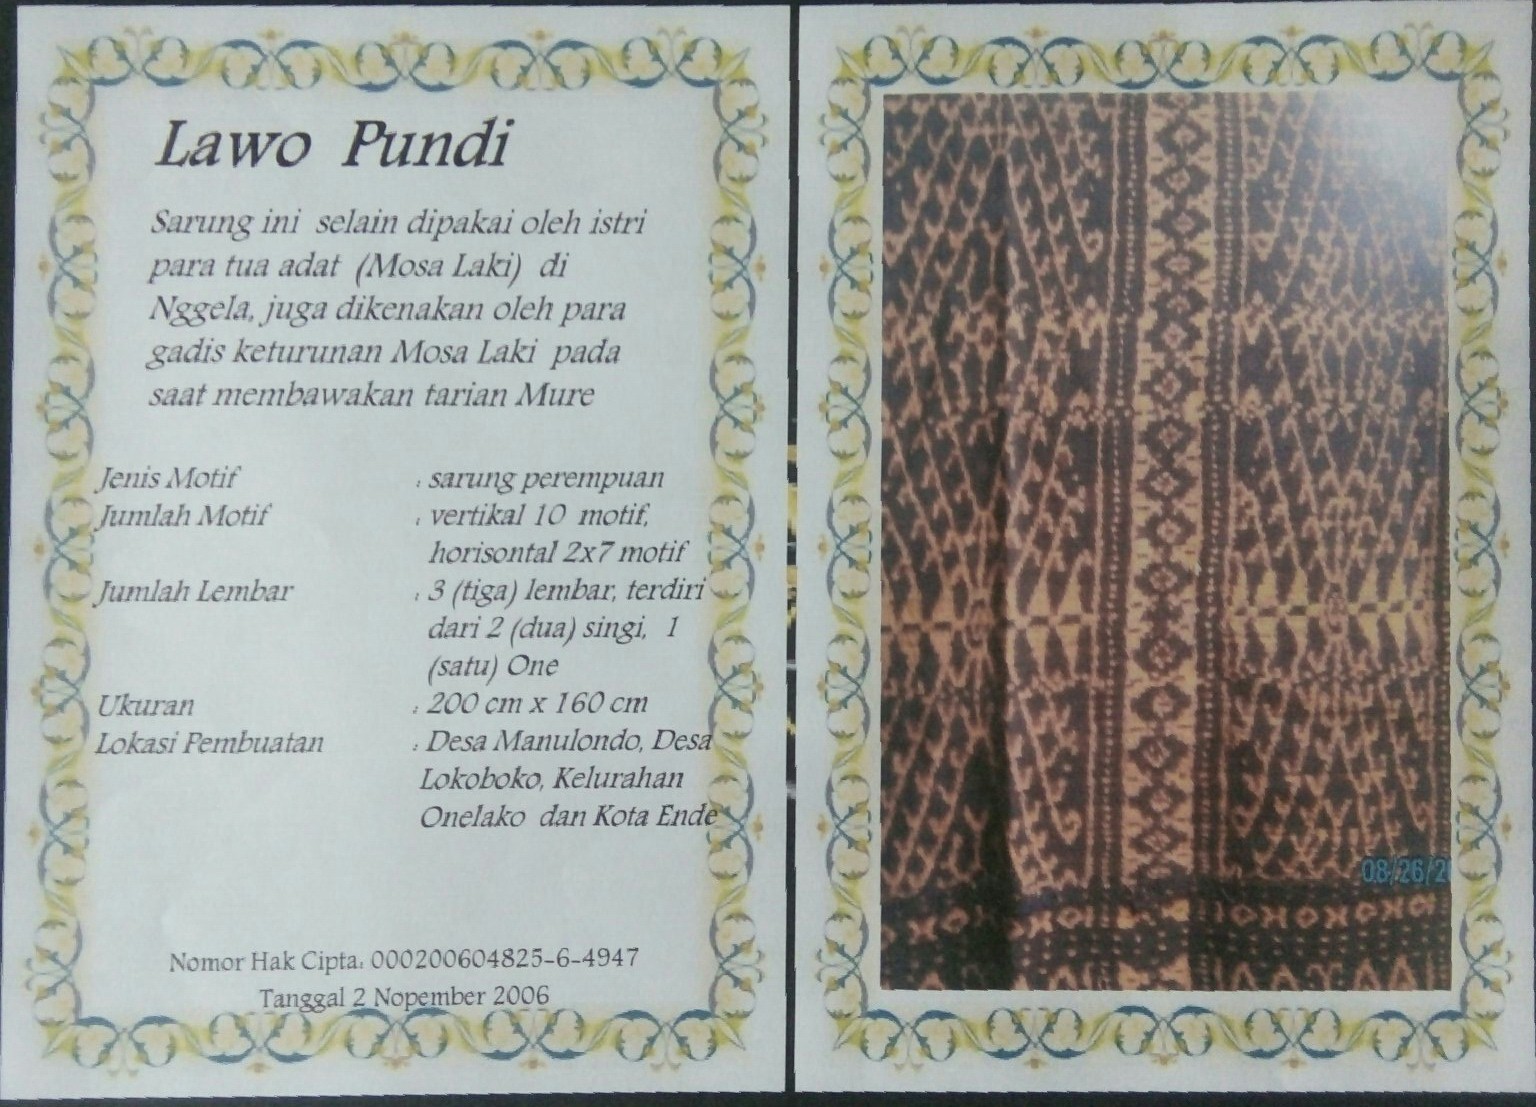 Lawo Pundi
Sarung ini selain dipakai oleh istri
para tua adat (Mosa Laki) di
Nggela, juga dikenakan oleh para
gadis keturunan Mosa Laki pada
saat membawakan tarian Mure
Jenis Motif : sarung perempuan
Jumlah Motif : vertikal 10 motif,
horisontal 2x7 motif
Jumlah Lembar : 3 (tiga) lembar, terdiri
dari 2 (dua) singi, 1
(satu) One
Ukuran : 200 cm x 160 cm
Lokasi Pembuatan : Desa Manulondo, Desa
Lokoboko, Kelurahan
Onelako dan Kota Ende
Nomor Hak Cipta: 000200604825-6-4947
Tanggal 2 Nopember 2006
08/26/20